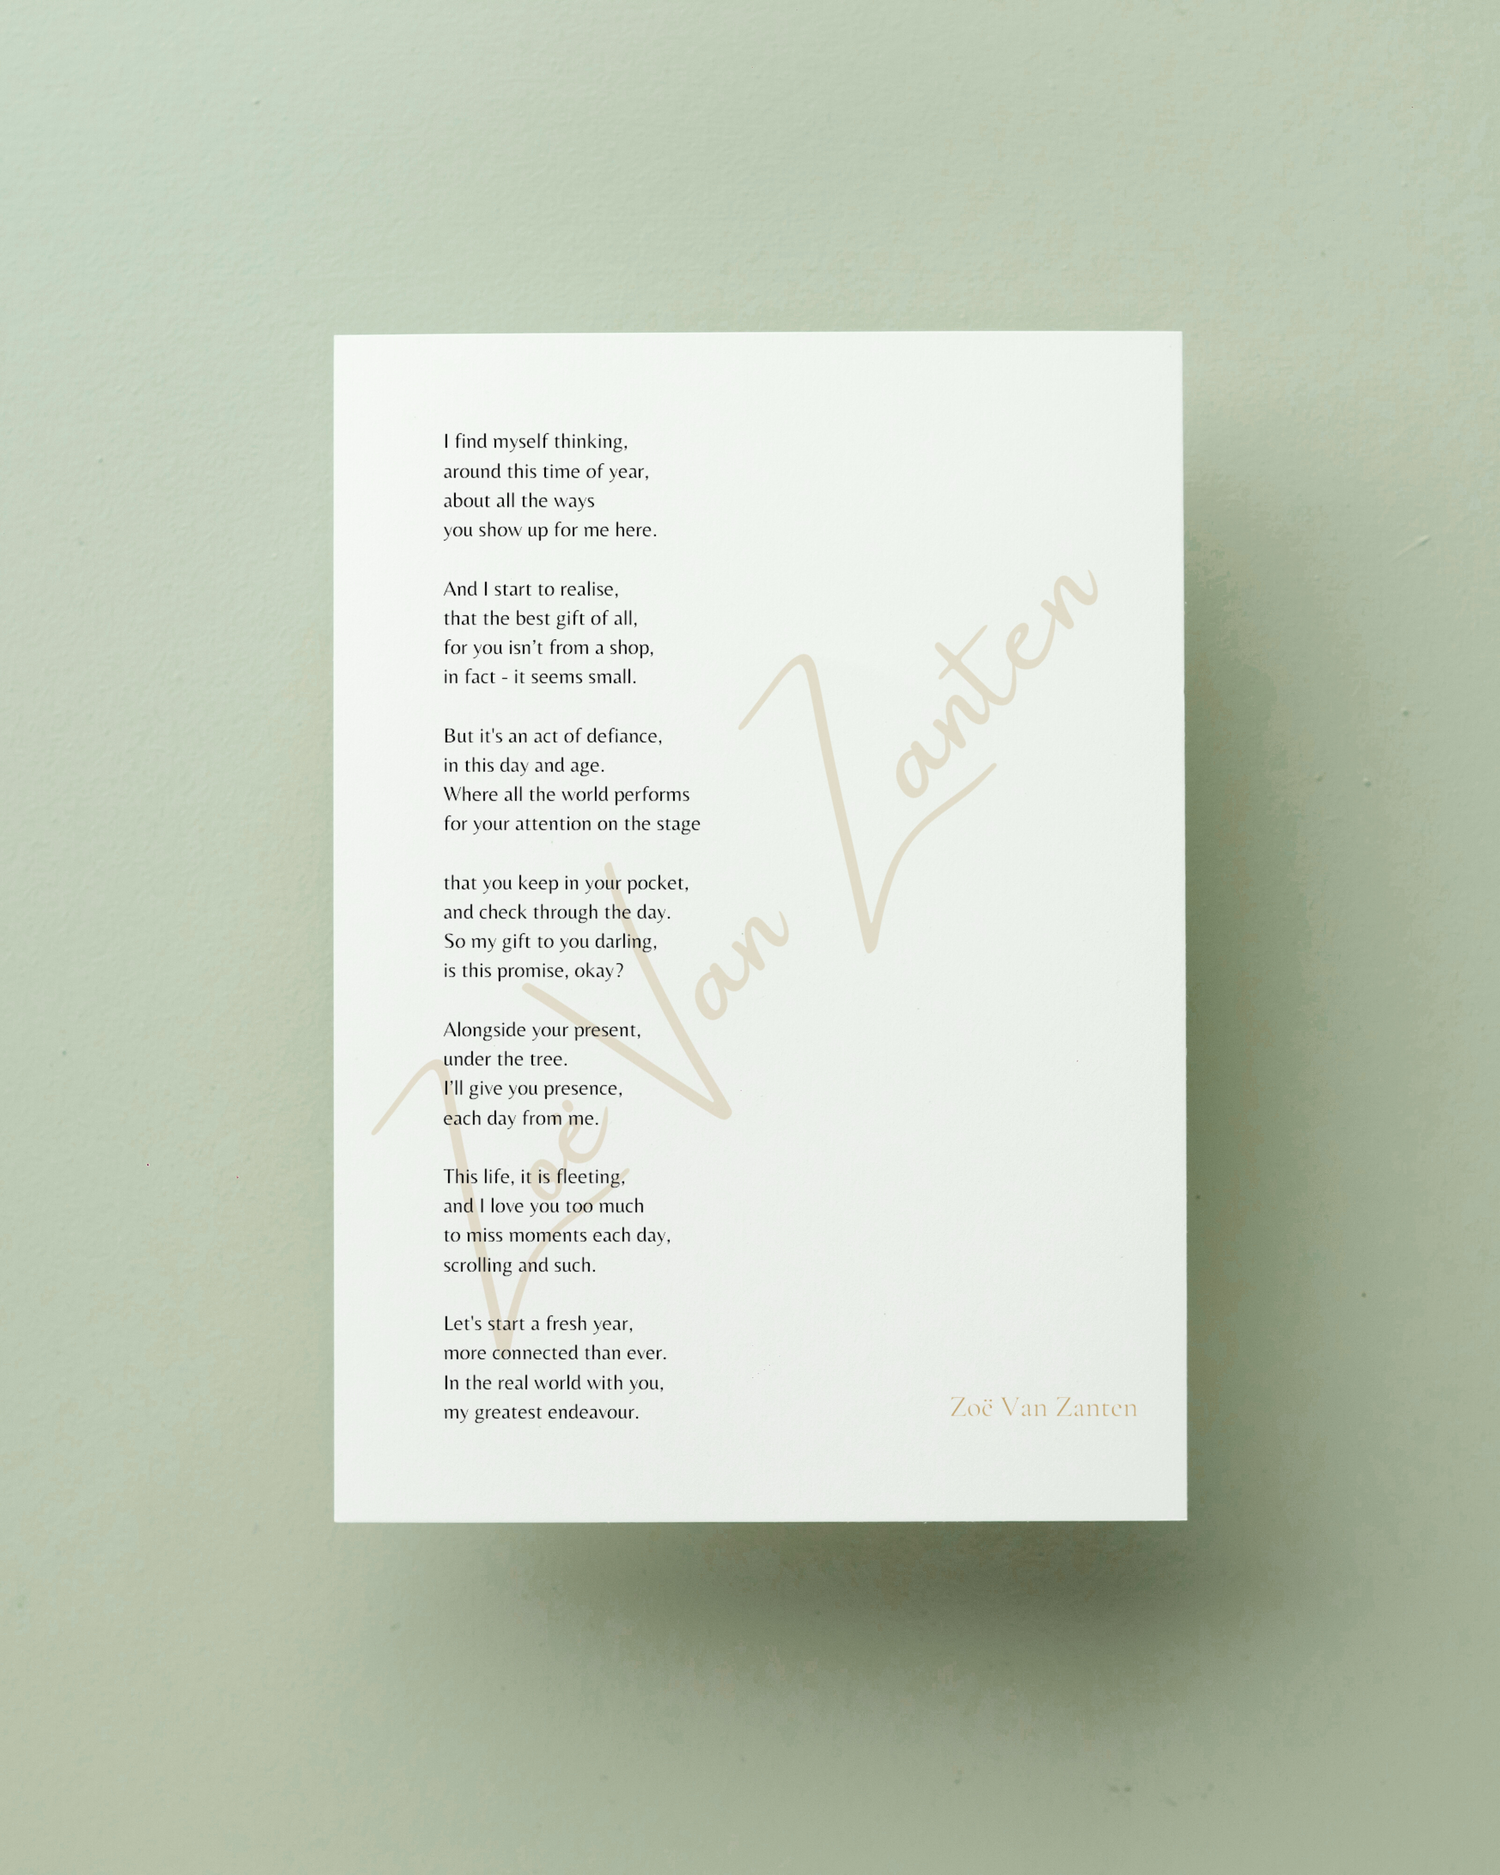 I find myself thinking,
around this time of year,
about all the ways
you show up for me here.

And I start to realise,
that the best gift of all,
for you isn’t from a shop,
in fact - it seems small.

But it's an act of defiance,
in this day and age.
Where all the world performs
for your attention on the stage

that you keep in your pocket,
and check through the day.
So my gift to you darling,
is this promise, okay?

Alongside your present,
under the tree.
I’ll give you presence,
each day from me.

This life, it is fleeting,
and I love you too much
to miss moments each day,
scrolling and such.

Let's start a fresh year,
more connected than ever.
In the real world with you,
my greatest endeavour.

Zoë Van Zanten
Zoë Van Zanten